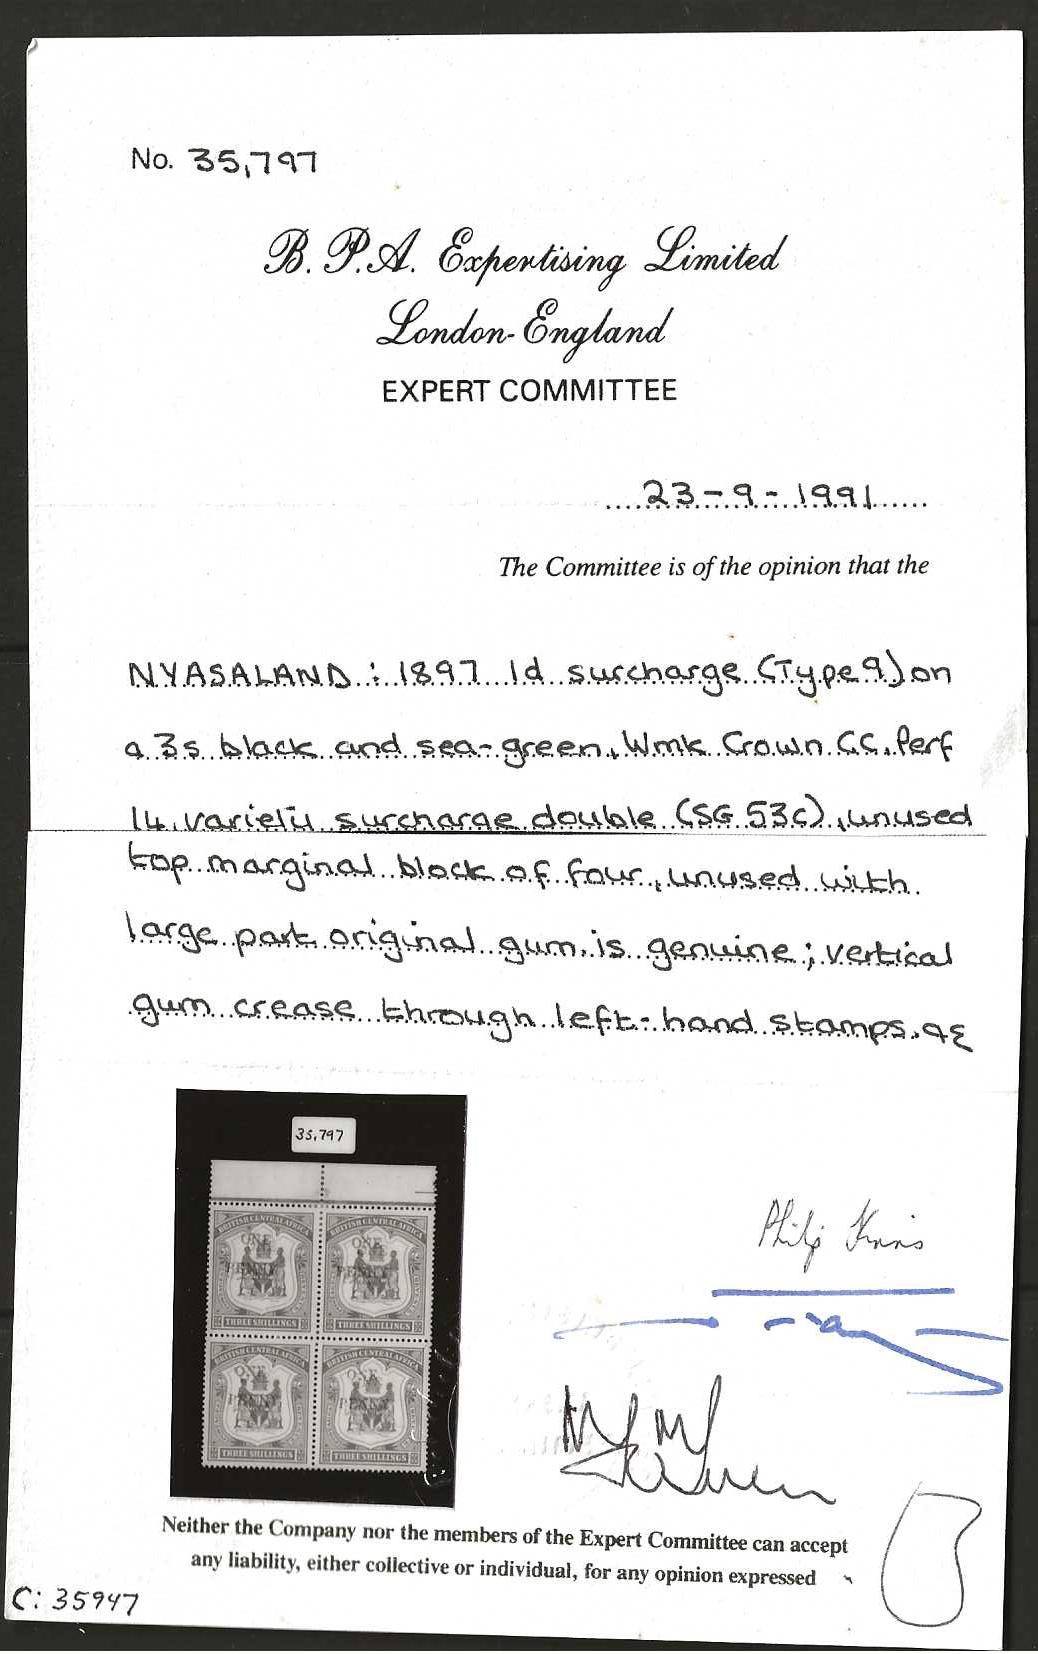 No. 35,797
B. P.A. Expertising Limited
London-England
EXPERT COMMITTEE
23-9-1991
The Committee is of the opinion that the
NYASALAND : 1897 1d surcharge (Type 9) on
a 3s black and sea-green, Wmk Crown CC, Perf
14, variety surcharge double (SG 53c), unused
top marginal block of four, unused with
large part original gum, is genuine ; vertical
gum crease through left-hand stamps.
35,797
BRITISH CENTRAL AFRICA
ONE
PENNY
THREE SHILLINGS
BRITISH CENTRAL AFRICA
ONE
PENNY
THREE SHILLINGS
BRITISH CENTRAL AFRICA
ONE
PENNY
THREE SHILLINGS
BRITISH CENTRAL AFRICA
ONE
PENNY
THREE SHILLINGS
Philip
Neither the Company nor the members of the Expert Committee can accept
any liability, either collective or individual, for any opinion expressed
C: 35947